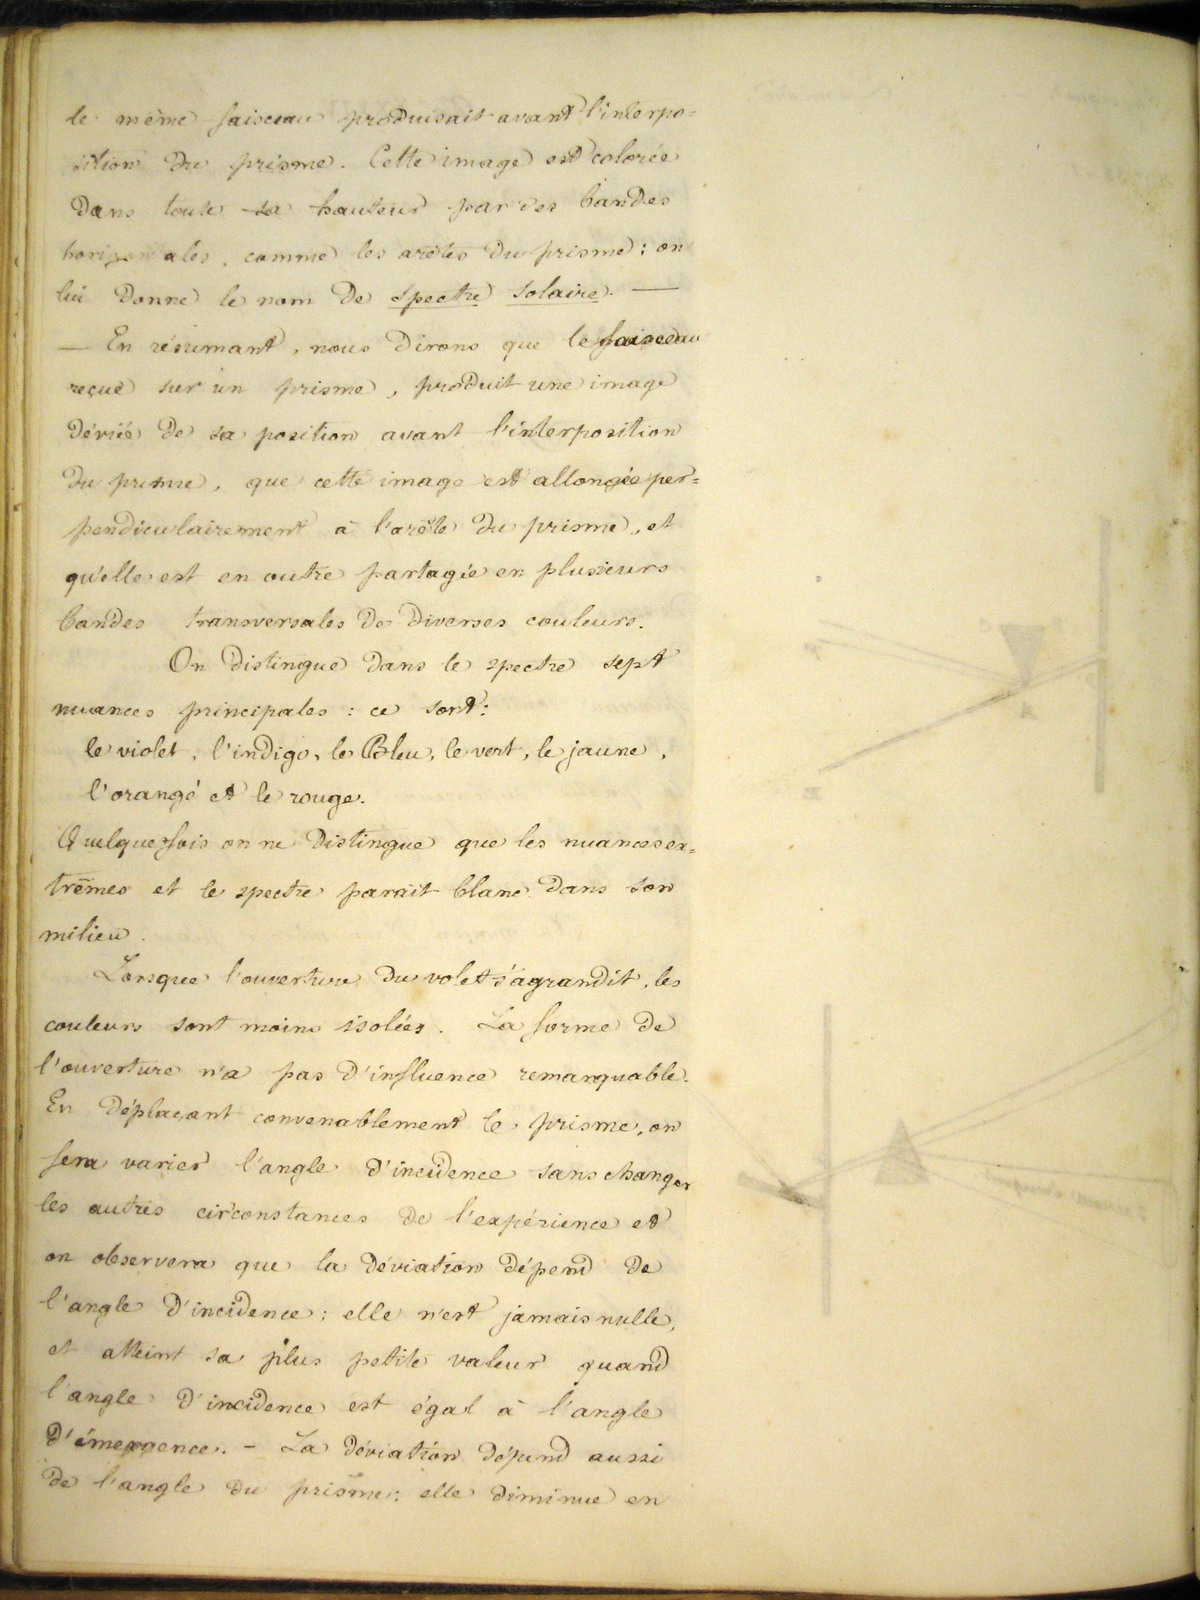 le même faisceau produisait avant l'interpo-
sition du prisme. Cette image est colorée
dans toute sa hauteur par des bandes
horizontales, comme les arêtes du prisme : on
lui donne le nom de spectre solaire. —
— En résumant, nous dirons que le faisceau
reçue sur un prisme, produit une image
déviée de sa position avant l'interposition
du prisme, que cette image est allongée per=
pendiculairement à l'arête du prisme, et
qu'elle est en outre partagée en plusieurs
bandes transversales de diverses couleurs.
On distingue dans le spectre sept
nuances principales : ce sont :
le violet, l'indigo, le Bleu, le vert, le jaune,
l'orangé et le rouge.
Quelquefois on ne distingue que les nuances ex=
trêmes et le spectre parait blanc dans son
milieu.
Lorsque l'ouverture du volet s'agrandit, les
couleurs sont moins isolées. La forme de
l'ouverture n'a pas d'influence remarquable.
En déplaçant convenablement le prisme, on
fera varier l'angle d'incidence sans changer
les autres circonstances de l'expérience et
on observera que la déviation dépend de
l'angle d'incidence ; elle n'est jamais nulle,
et atteint sa plus petite valeur quand
l'angle d'incidence est égal à l'angle
d'émergence. – La déviation dépend aussi
de l'angle du prisme ; elle diminue en
A